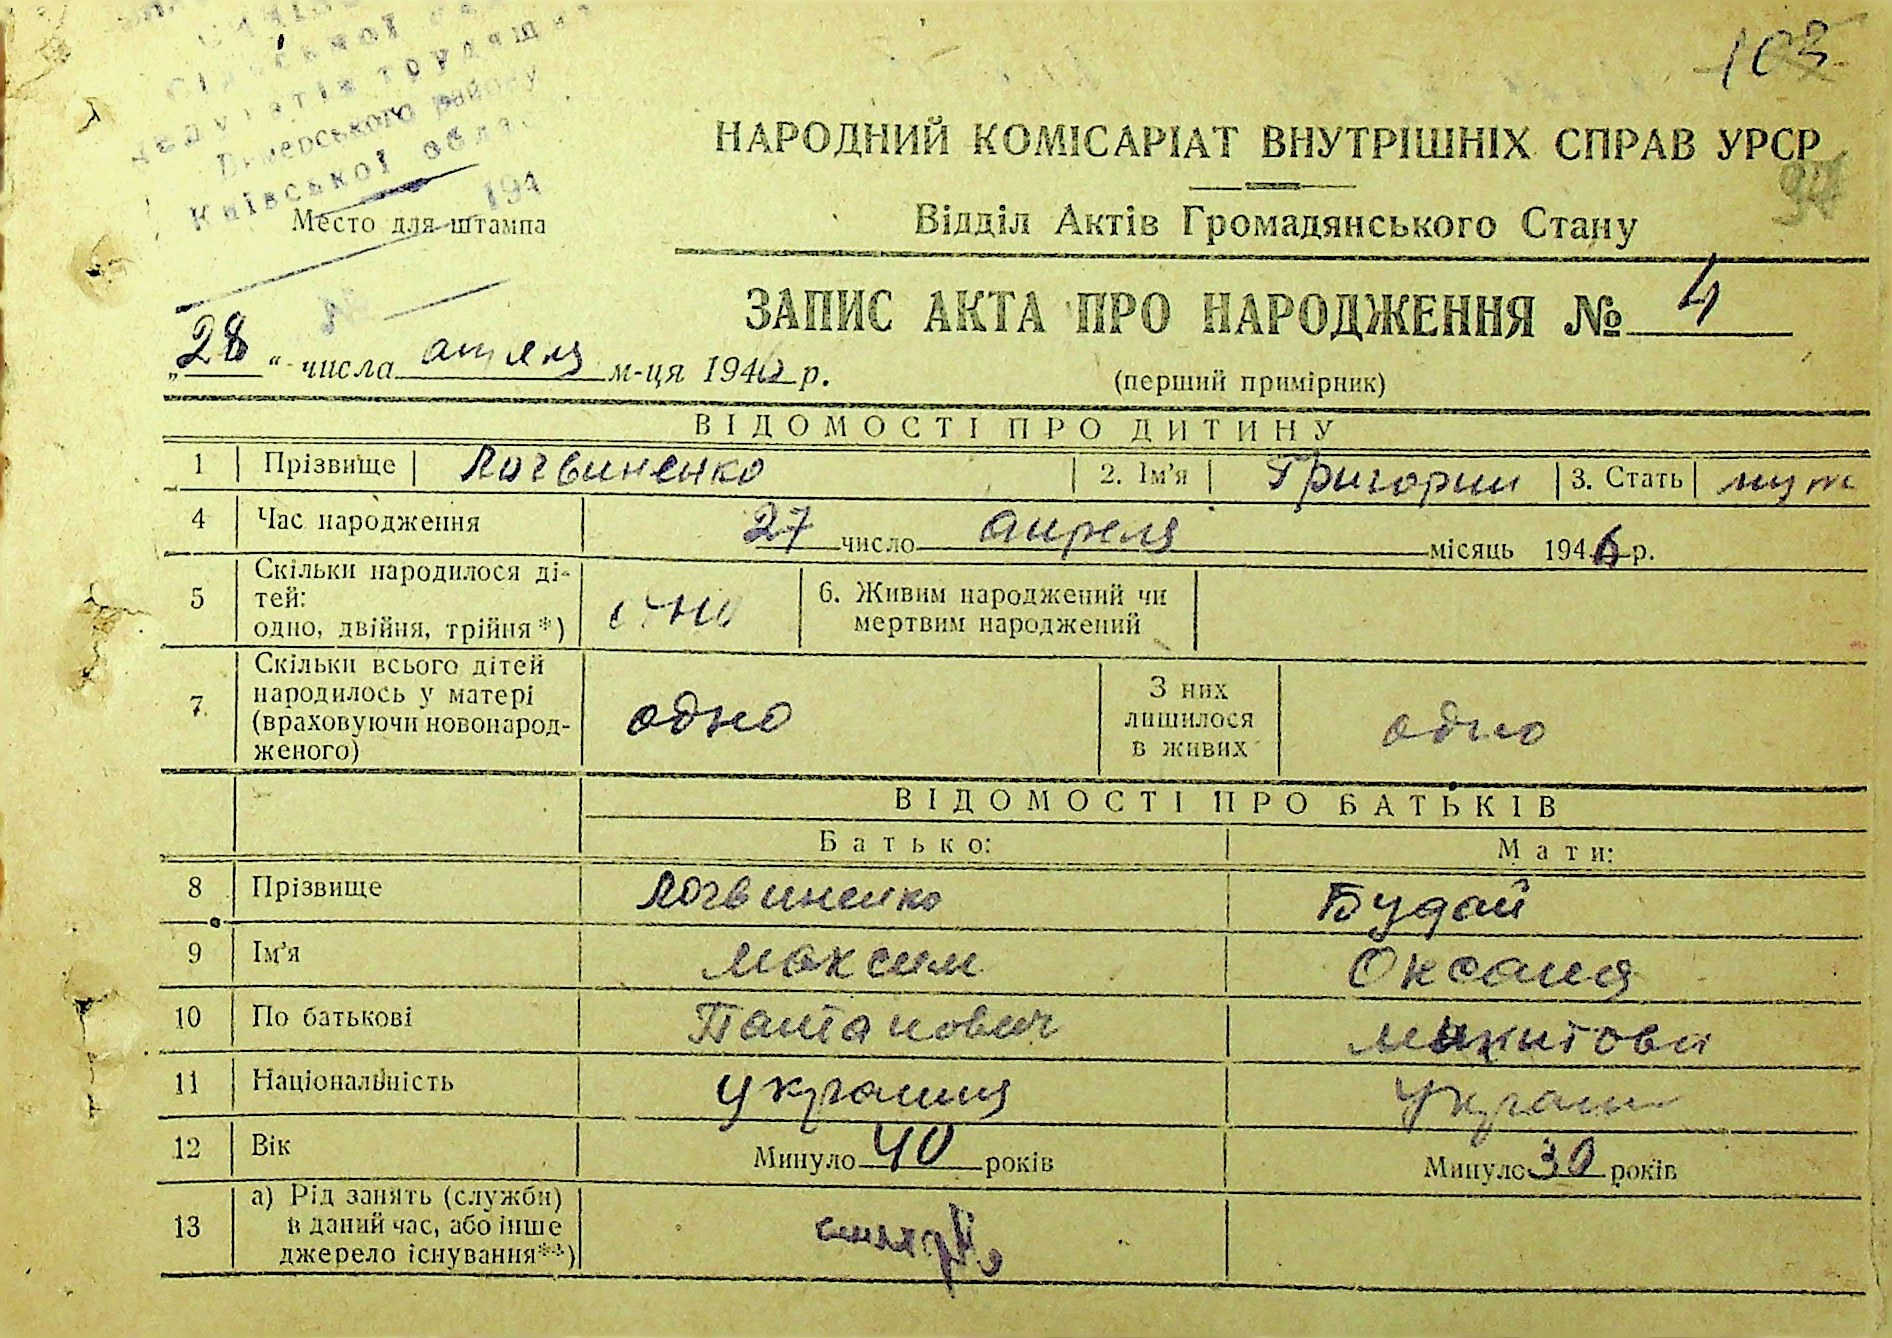 Сільської
депутатів трудящих
Димерського району
Київської області
194
№
Место для штампа
103
НАРОДНИЙ КОМІСАРІАТ ВНУТРІШНІХ СПРАВ УРСР
Відділ Актів Громадянського Стану
ЗАПИС АКТА ПРО НАРОДЖЕННЯ № 4
„28“ числа апреля м-ця 1946 р.
(перший примірник)
ВІДОМОСТІ ПРО ДИТИНУ
1 Прізвище Логвиненко 2. Ім’я Григорий 3. Стать муж
4 Час народження 27 число апреля місяць 1946 р.
5 Скільки народилося ді-
тей:
одно, двійня, трійня*) одно
6. Живим народжений чи
мертвим народжений
7. Скільки всього дітей
народилось у матері
(враховуючи новонарод-
женого) одно
З них
лишилося
в живих одно
ВІДОМОСТІ ПРО БАТЬКІВ
Батько: Мати:
8 Прізвище Логвиненко Будай
9 Ім’я Максим Оксана
10 По батькові Микитовн
11 Національність
12 Вік Минуло 40 років Минуло 30 років
13 а) Рід занять (служби)
в даний час, або інше
джерело існування**)